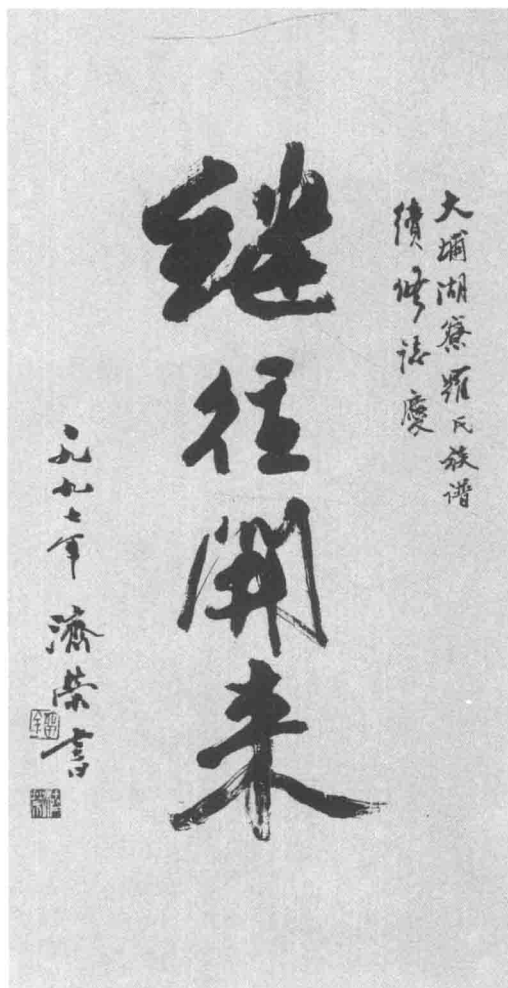 大埔湖寮羅氏族譜
續修誌慶
继往開来
一九九七年 濟榮書